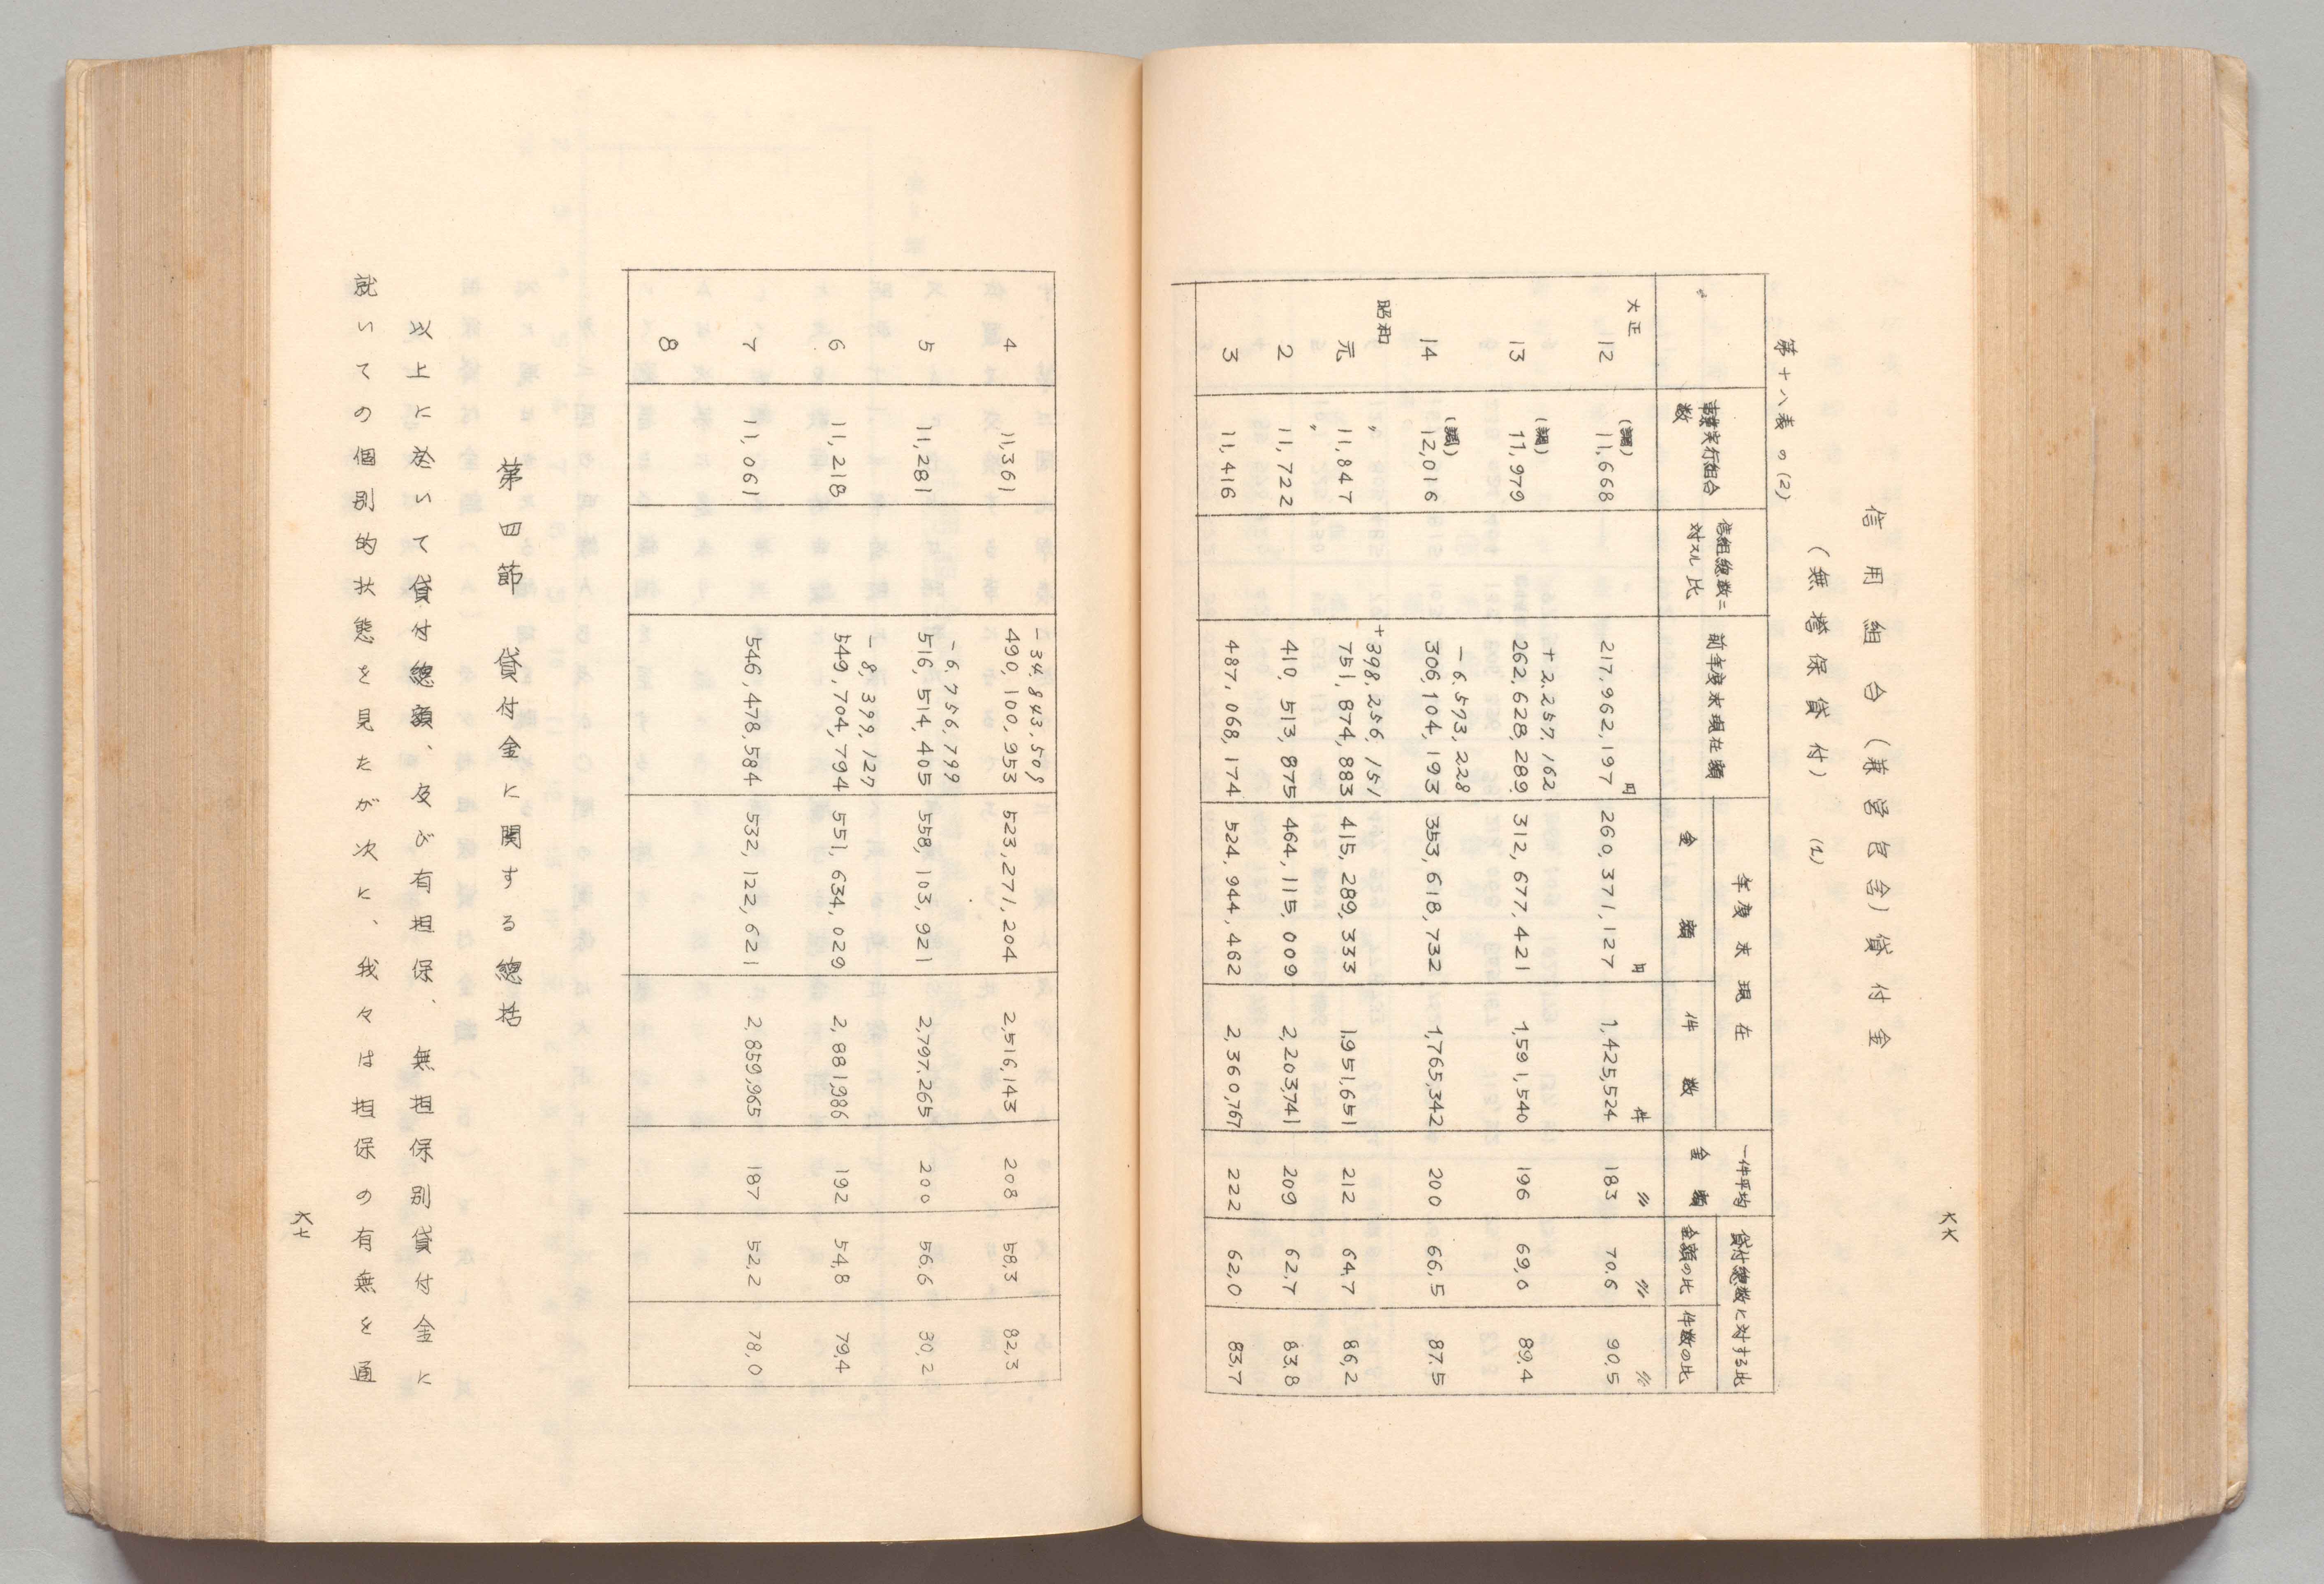 信用組合（兼営包含）貸付金
（無担保貸付）(1)
第十八表の(2)
事業実行組合数
信組総数ニ対スル比
前年度末現在額
年度末現在
金額
件数
一件平均金額
貸付総数に対する比
金額の比
件数の比
円 円 件 〃 〃 〃
大正 12 (調) 11,668 217,962,197 260,371,127 1,425,524 183 70.6 90,5
+2,257,162
13 (調) 11,979 262,628,289 312,677,421 1,591,540 196 69,0 89,4
-6,573,228
14 (調) 12,016 306,104,193 353,618,732 1,765,342 200 66,5 87,5
+398,256,151
昭和 元 〃 11,847 751,874,883 415,289,333 1,951,651 212 64,7 86,2
2 〃 11,722 410,513,875 464,115,009 2,203,741 209 62,7 83,8
3 11,416 487,068,174 524,944,462 2,360,767 222 62,0 83,7
六六
-34,843,509
4 11,361 490,100,953 523,271,204 2,516,143 208 58,3 82,3
-6,756,799
5 11,281 516,514,405 558,103,921 2,797,265 200 56.6 80,2
-8,399,127
6 11,218 549,704,794 551,634,029 2,881,986 192 54,8 79,4
7 11,061 546,478,584 532,122,621 2,859,965 187 52,2 78,0
8
第四節　貸付金に関する総括
以上に於いて貸付総額、及び有担保、無担保別貸付金に
就いての個別的状態を見たが次に、我々は担保の有無を通
六七